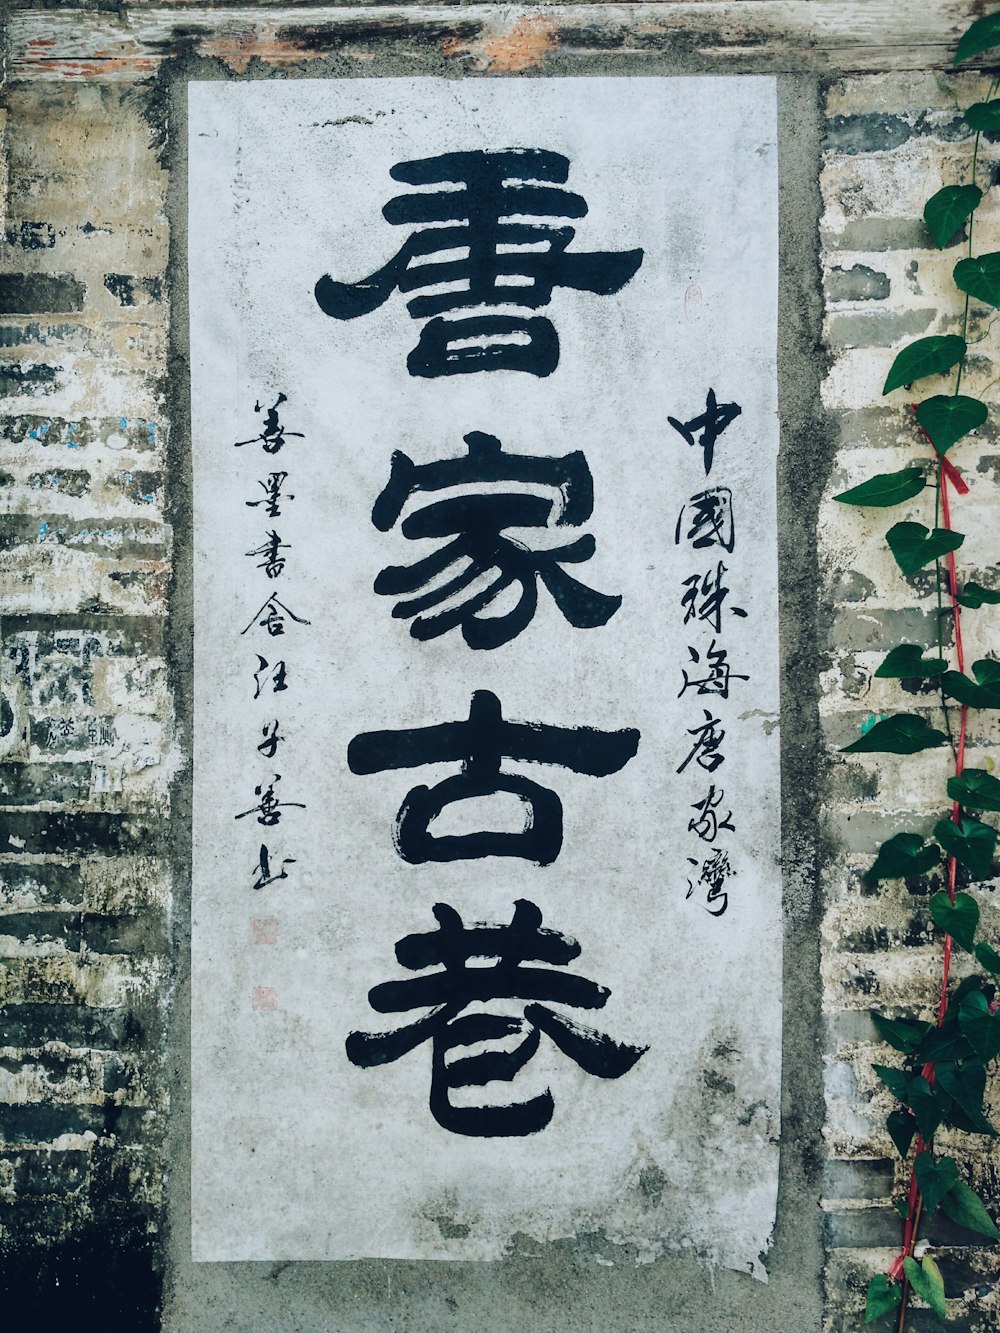 中國珠海唐家灣
唐家古巷
善墨書舍汪子善